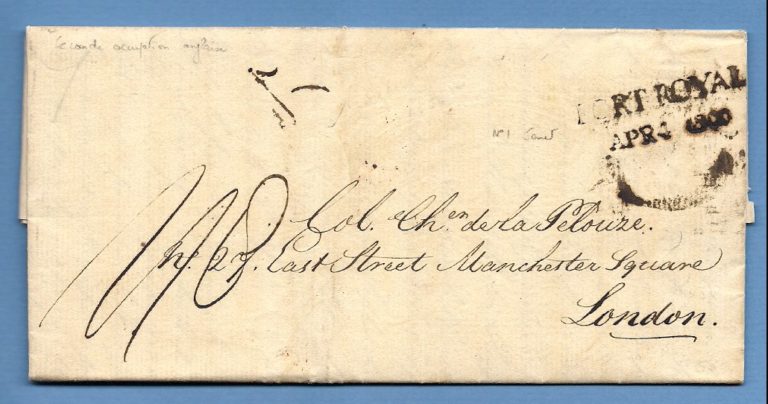 Seconde occupation anglaise
PORT ROYAL
APR 4 1800
N° 1
Col. Ch.en de la Pelouze.
N.º 27. East Street Manchester Square
London.